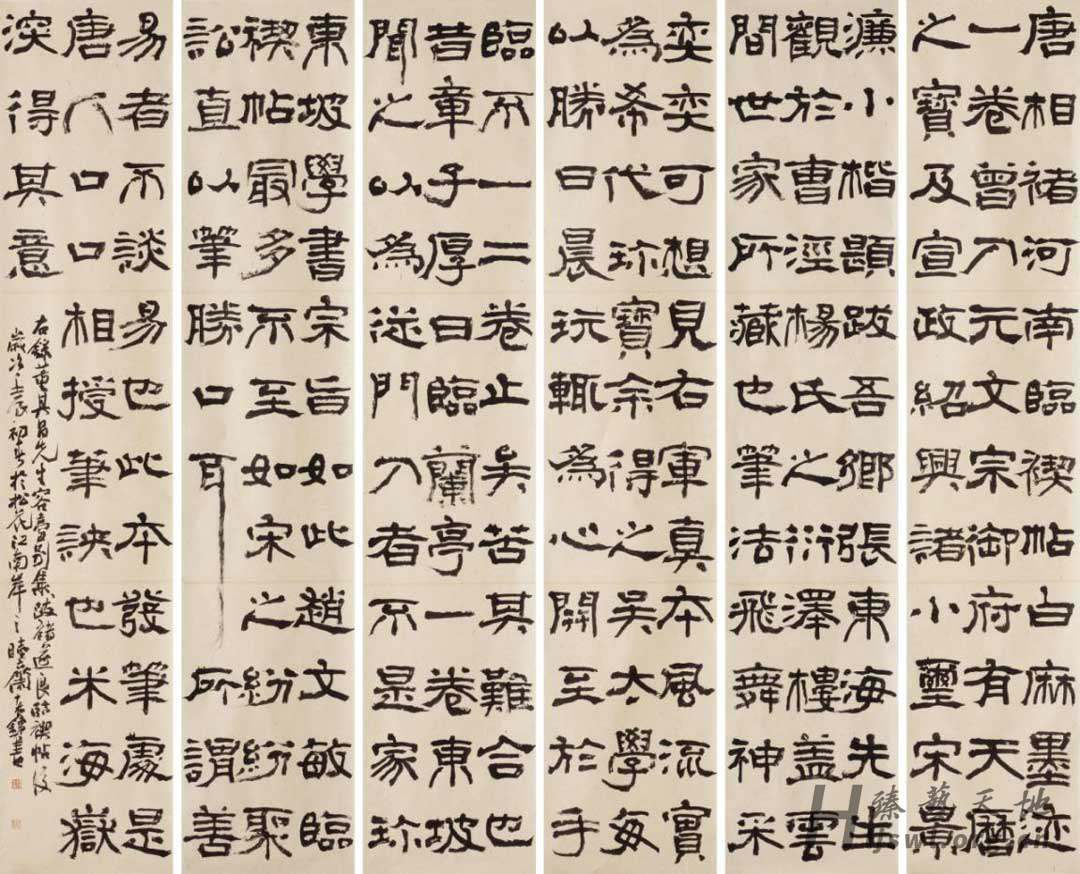 唐相褚河南臨禊帖白麻墨迹
一卷曾入元文宗御府有天曆
之寶及宣政紹興諸小璽宋景
濂小楷題跋吾鄉張東海先生
觀於曹涇楊氏之衍澤樓蓋雲
間世家所藏也筆法飛舞神采
奕奕可想見右軍真本風流實
為希代珎寶余得之吳太學每
以勝日晨玩輒為心開至於手
臨不一二卷止矣苦其難合也
昔章子厚日臨蘭亭一卷東坡
聞之以為從門入者不是家珎
東坡學書宗旨如此趙文敏臨
禊帖最多不至如宋之紛紛聚
訟直以筆勝口耳所謂善
易者不談易也此本發筆處是
唐人口口相授筆訣也米海嶽
深得其意
右錄董其昌先生容臺別集跋褚遂良臨禊帖後
歲次壬辰初春於松花江南岸之書
臻藝天地